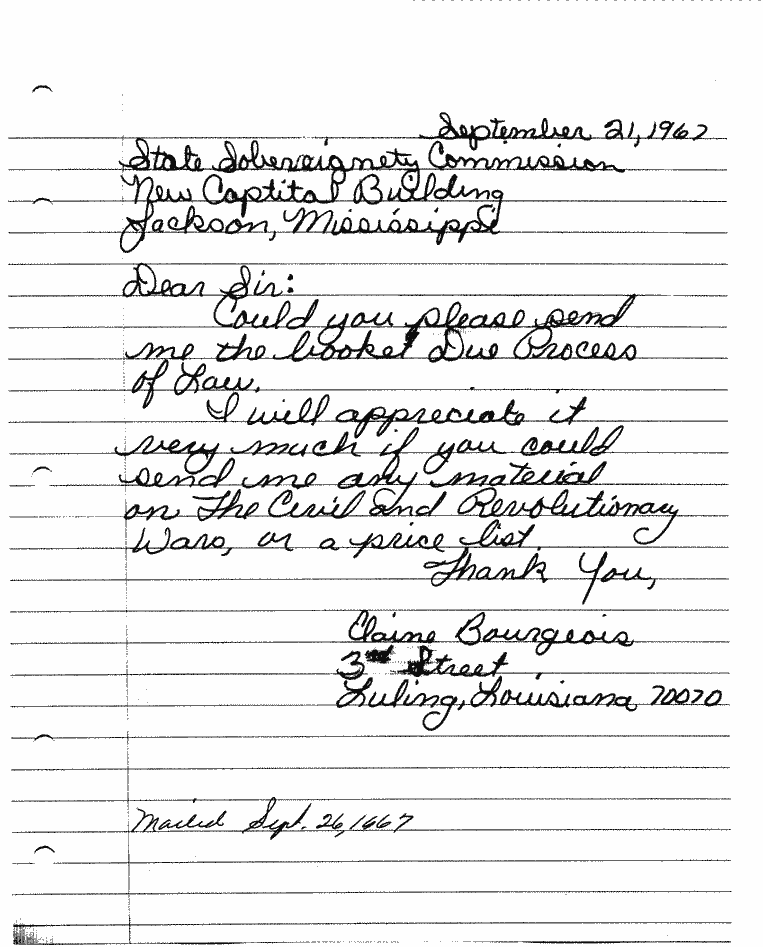 September 21, 1967
State Sobereignety Commission
New Captital Building
Jackson, Mississippi
Dear Sir:
Could you please send
me the booket Due Process
of Law.
I will appreciate it
very much if you could
send me any material
on The Civil and Revolutionary
Wars, or a price list.
Thank You,
Elaine Bourgeois
3rd Street
Luling, Louisiana 70070
Mailed Sept. 26, 1667